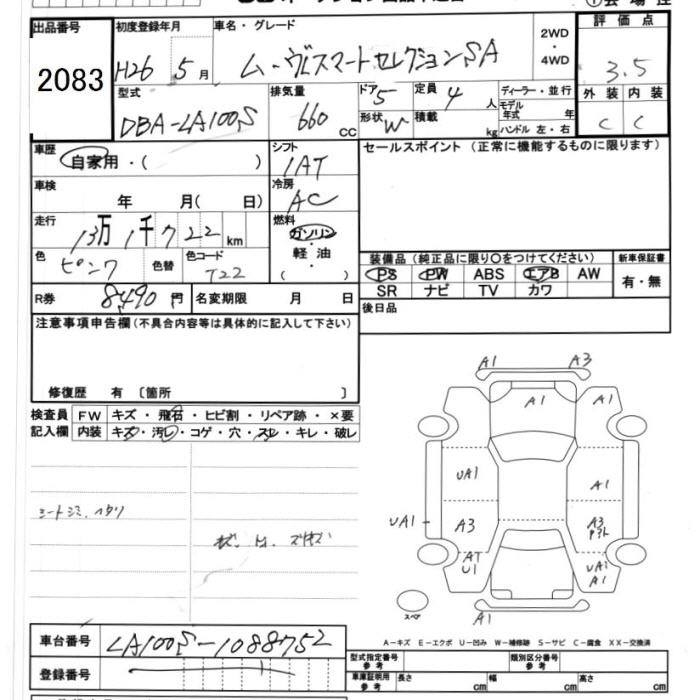 出品番号 初度登録年月 車名・グレード 2WD ・ 4WD 評価点
2083 H26 5月 ムーヴスマートセレクションSA 3.5
型式 排気量 ドア 定員 ディーラー・並行 外装 内装
DBA-LA100S 660 cc 5 4 人 モデル年式 年 C C
形状 W 積載 kg ハンドル 左・右
車歴 シフト セールスポイント(正常に機能するものに限ります)
自家用・( ) IAT
車検 冷房
年 月( 日) AC
走行 燃料
13万1千722km ガソリン・軽油 ( )
色 ピンク 色替 色コード T22
装備品(純正品に限り○をつけてください) 新車保証書
PS PW ABS エアB AW 有・無
SR ナビ TV カワ
R券 8490円 名変期限 月 日 後日品
注意事項申告欄(不具合内容等は具体的に記入して下さい)
修復歴 有 〔箇所 〕
検査員 FW キズ・飛石・ヒビ割・リペア跡・×要
記入欄 内装 キズ・汚レ・コゲ・穴・スレ・キレ・破レ
シートシミ、ヘタリ
A1 A3
A1 A1
UA1 A1
UA1 A3 A3
AT
U1 UA1
A1
スペア A1
A-キズ E-エクボ U-凹み W-補修跡 S-サビ C-腐食 XX-交換済
車台番号 LA100S-1088752
登録番号
型式指定番号 参考 類別区分番号 参考
車庫証明用 参考 長さ cm 幅 cm 高さ cm